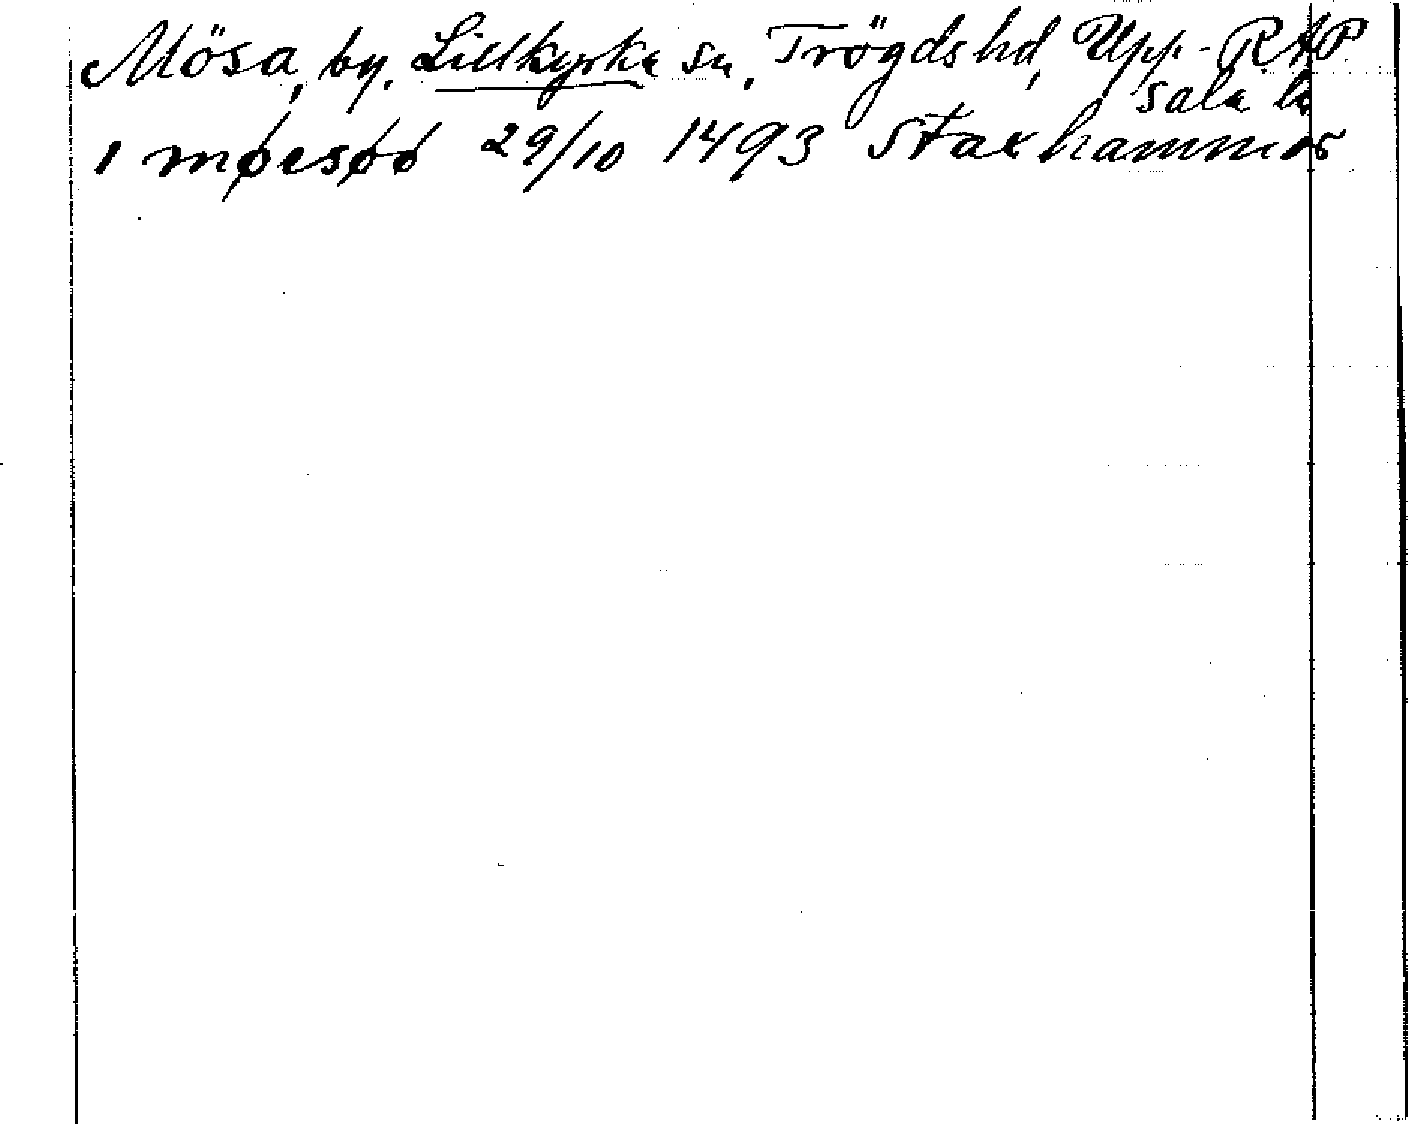 Mösa, by. Lillkyrka sn, Trögds hd, Upp- RAP
sala l.
1 møesøø 29/10 1493 Staxhammar